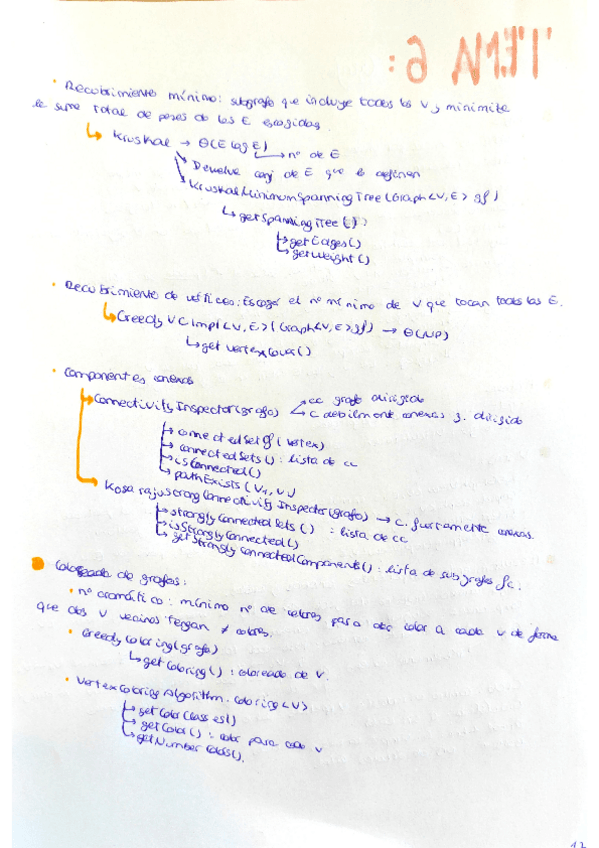 TEMA 6:
· Recubrimiento mínimo: subgrafo que incluye todos los V y minimite
la suma total de pesos de los E escogidos.
↳ Kruskal → Θ(E log E)
↳ nº de E
Devuelve conj de E que lo definen
Kruskal MinimumSpanningTree (Graph<V,E> gf)
↳ getSpanningTree()
↳ getEdges()
↳ getWeight()
· Recubrimiento de vértices: Escoger el nº mínimo de V que tocan todos los E.
↳ Greedy VC Impl<V,E>(Graph<V,E> gf) → Θ(NP)
↳ get vertexCover()
· Componentes conexas
→ Connectivity Inspector(grafo)
cc grafo dirigido
C debilmente conexas g. dirigido
↳ connectedSetOf(vertex)
↳ connectedSets(): lista de cc
↳ isConnected()
↳ pathExists(V₁, V₂)
→ KosarajuStrongConnectivityInspector(grafo) → c. fuertemente conexas.
↳ stronglyConnectedSets() : lista de cc
↳ isStronglyConnected()
↳ getStronglyConnectedComponents(): lista de subgrafos fc.
Coloreado de grafos:
· nº cromático: mínimo nº de colores para dar color a cada V de forma
que dos V vecinos tengan ≠ colores.
· Greedy Coloring(grafo)
↳ getColoring(): coloreado de V.
· VertexColoringAlgorithm.Coloring<V>
↳ getColorClasses()
↳ getColor(): color para cada V
↳ getNumberColors().